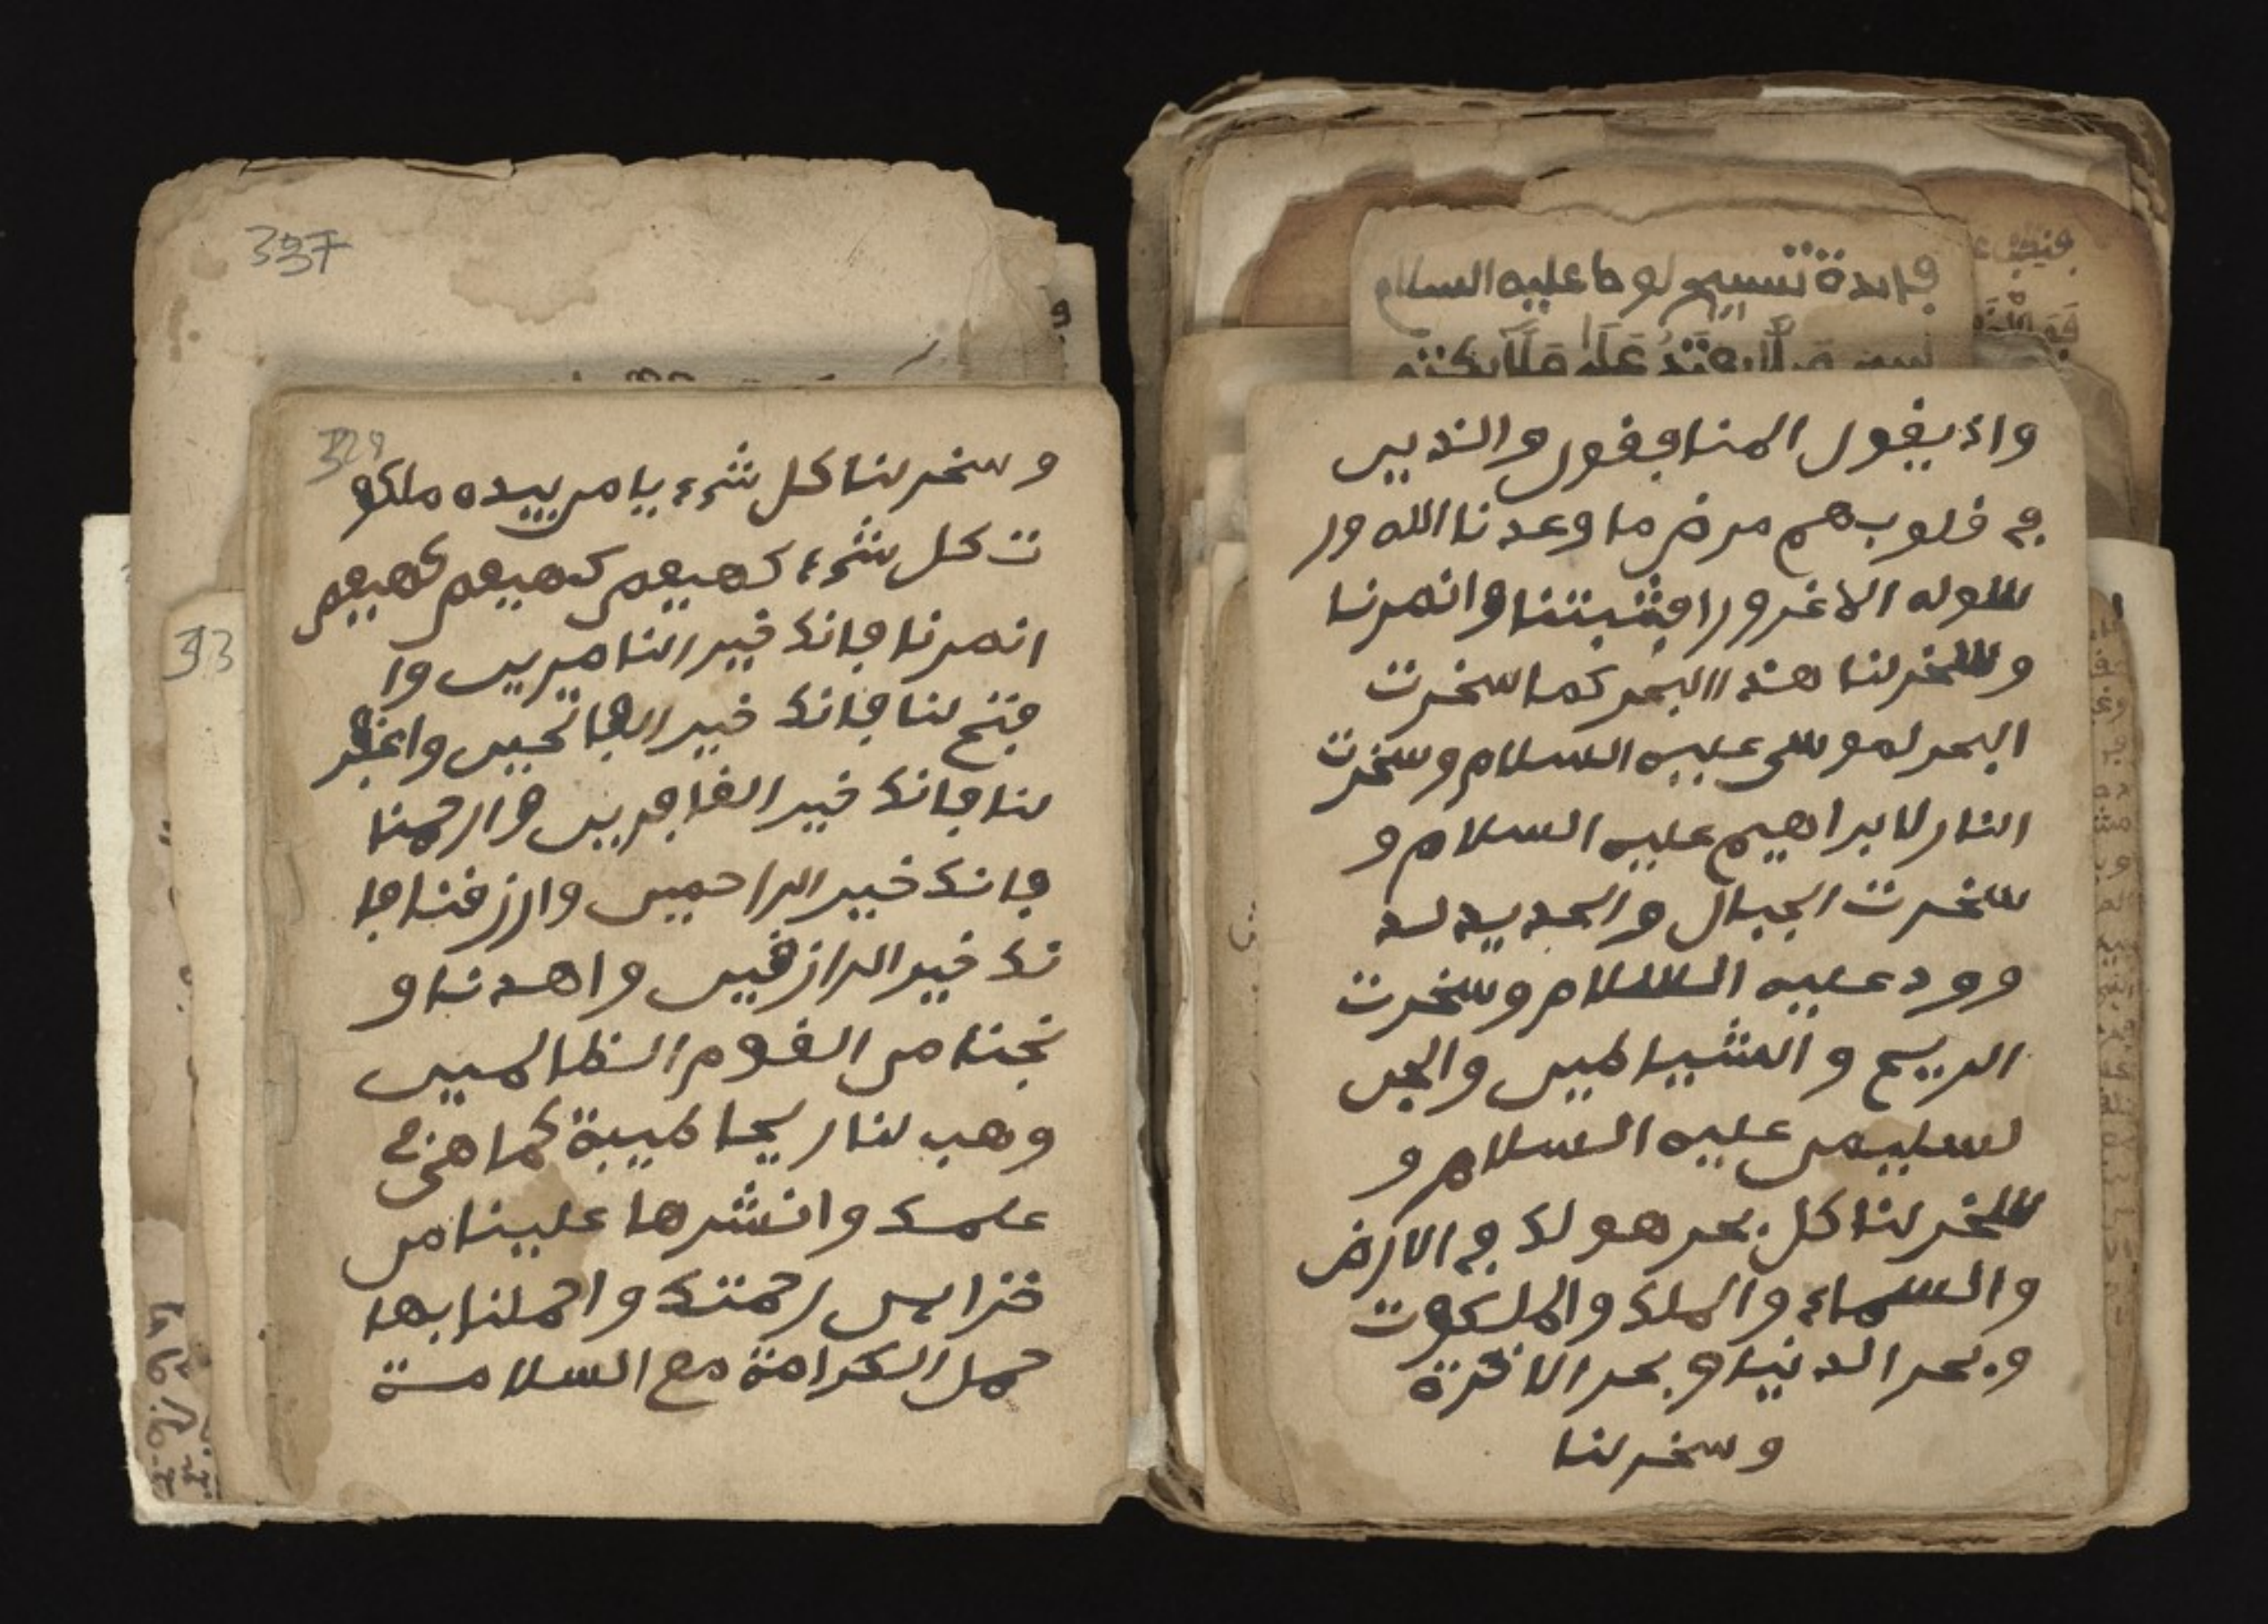 فايدة تسبيح لوط عليه السلام
واذ يقول المنافقون والذين
في قلوبهم مرض ما وعدنا الله ور
سوله الا غرورا فثبتنا وانصرنا
وسخر لنا هذا البحر كما سخرت
البحر لموسى عليه السلام وسخرت
النار لابراهيم عليه السلام و
سخرت الجبال والحديد لد
وود عليه السلام وسخرت
الريح والشياطين والجن
لسليمن عليه السلام و
سخر لنا كل بحر هو لك في الارض
والسماء والملك والملكوت
وبحر الدنيا وبحر الاخرة
وسخر لنا
337
329
وسخر لنا كل شيء يا من بيده ملكو
ت كل شيء كهيعص كهيعص كهيعص
انصرنا فانك خير الناصرين وا
فتح لنا فانك خير الفاتحين واغفر
لنا فانك خير الغافرين وارحمنا
فانك خير الراحمين وارزقنا فا
نك خير الرازقين واهدنا و
نجنا من القوم الظالمين
وهب لنا ريحا طيبة كما هي في
علمك وانشرها علينا من
خزاين رحمتك واحملنا بها
حمل الكرامة مع السلامة
33